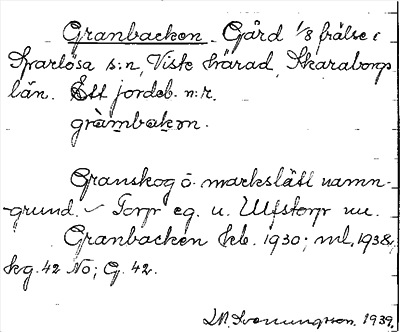 Granbacken. Gård 1/8 frälse i
Sparlösa s:n, Viste härad, Skaraborgs
län. Ett jordeb. n:r.
gràmbakən.
Granskog o. markslätt namn-
grund. – Torp eg. u. Ulfstorp nu.
Granbacken kb. 1930; ml. 1938,
kg. 42 No; G. 42.
1939.